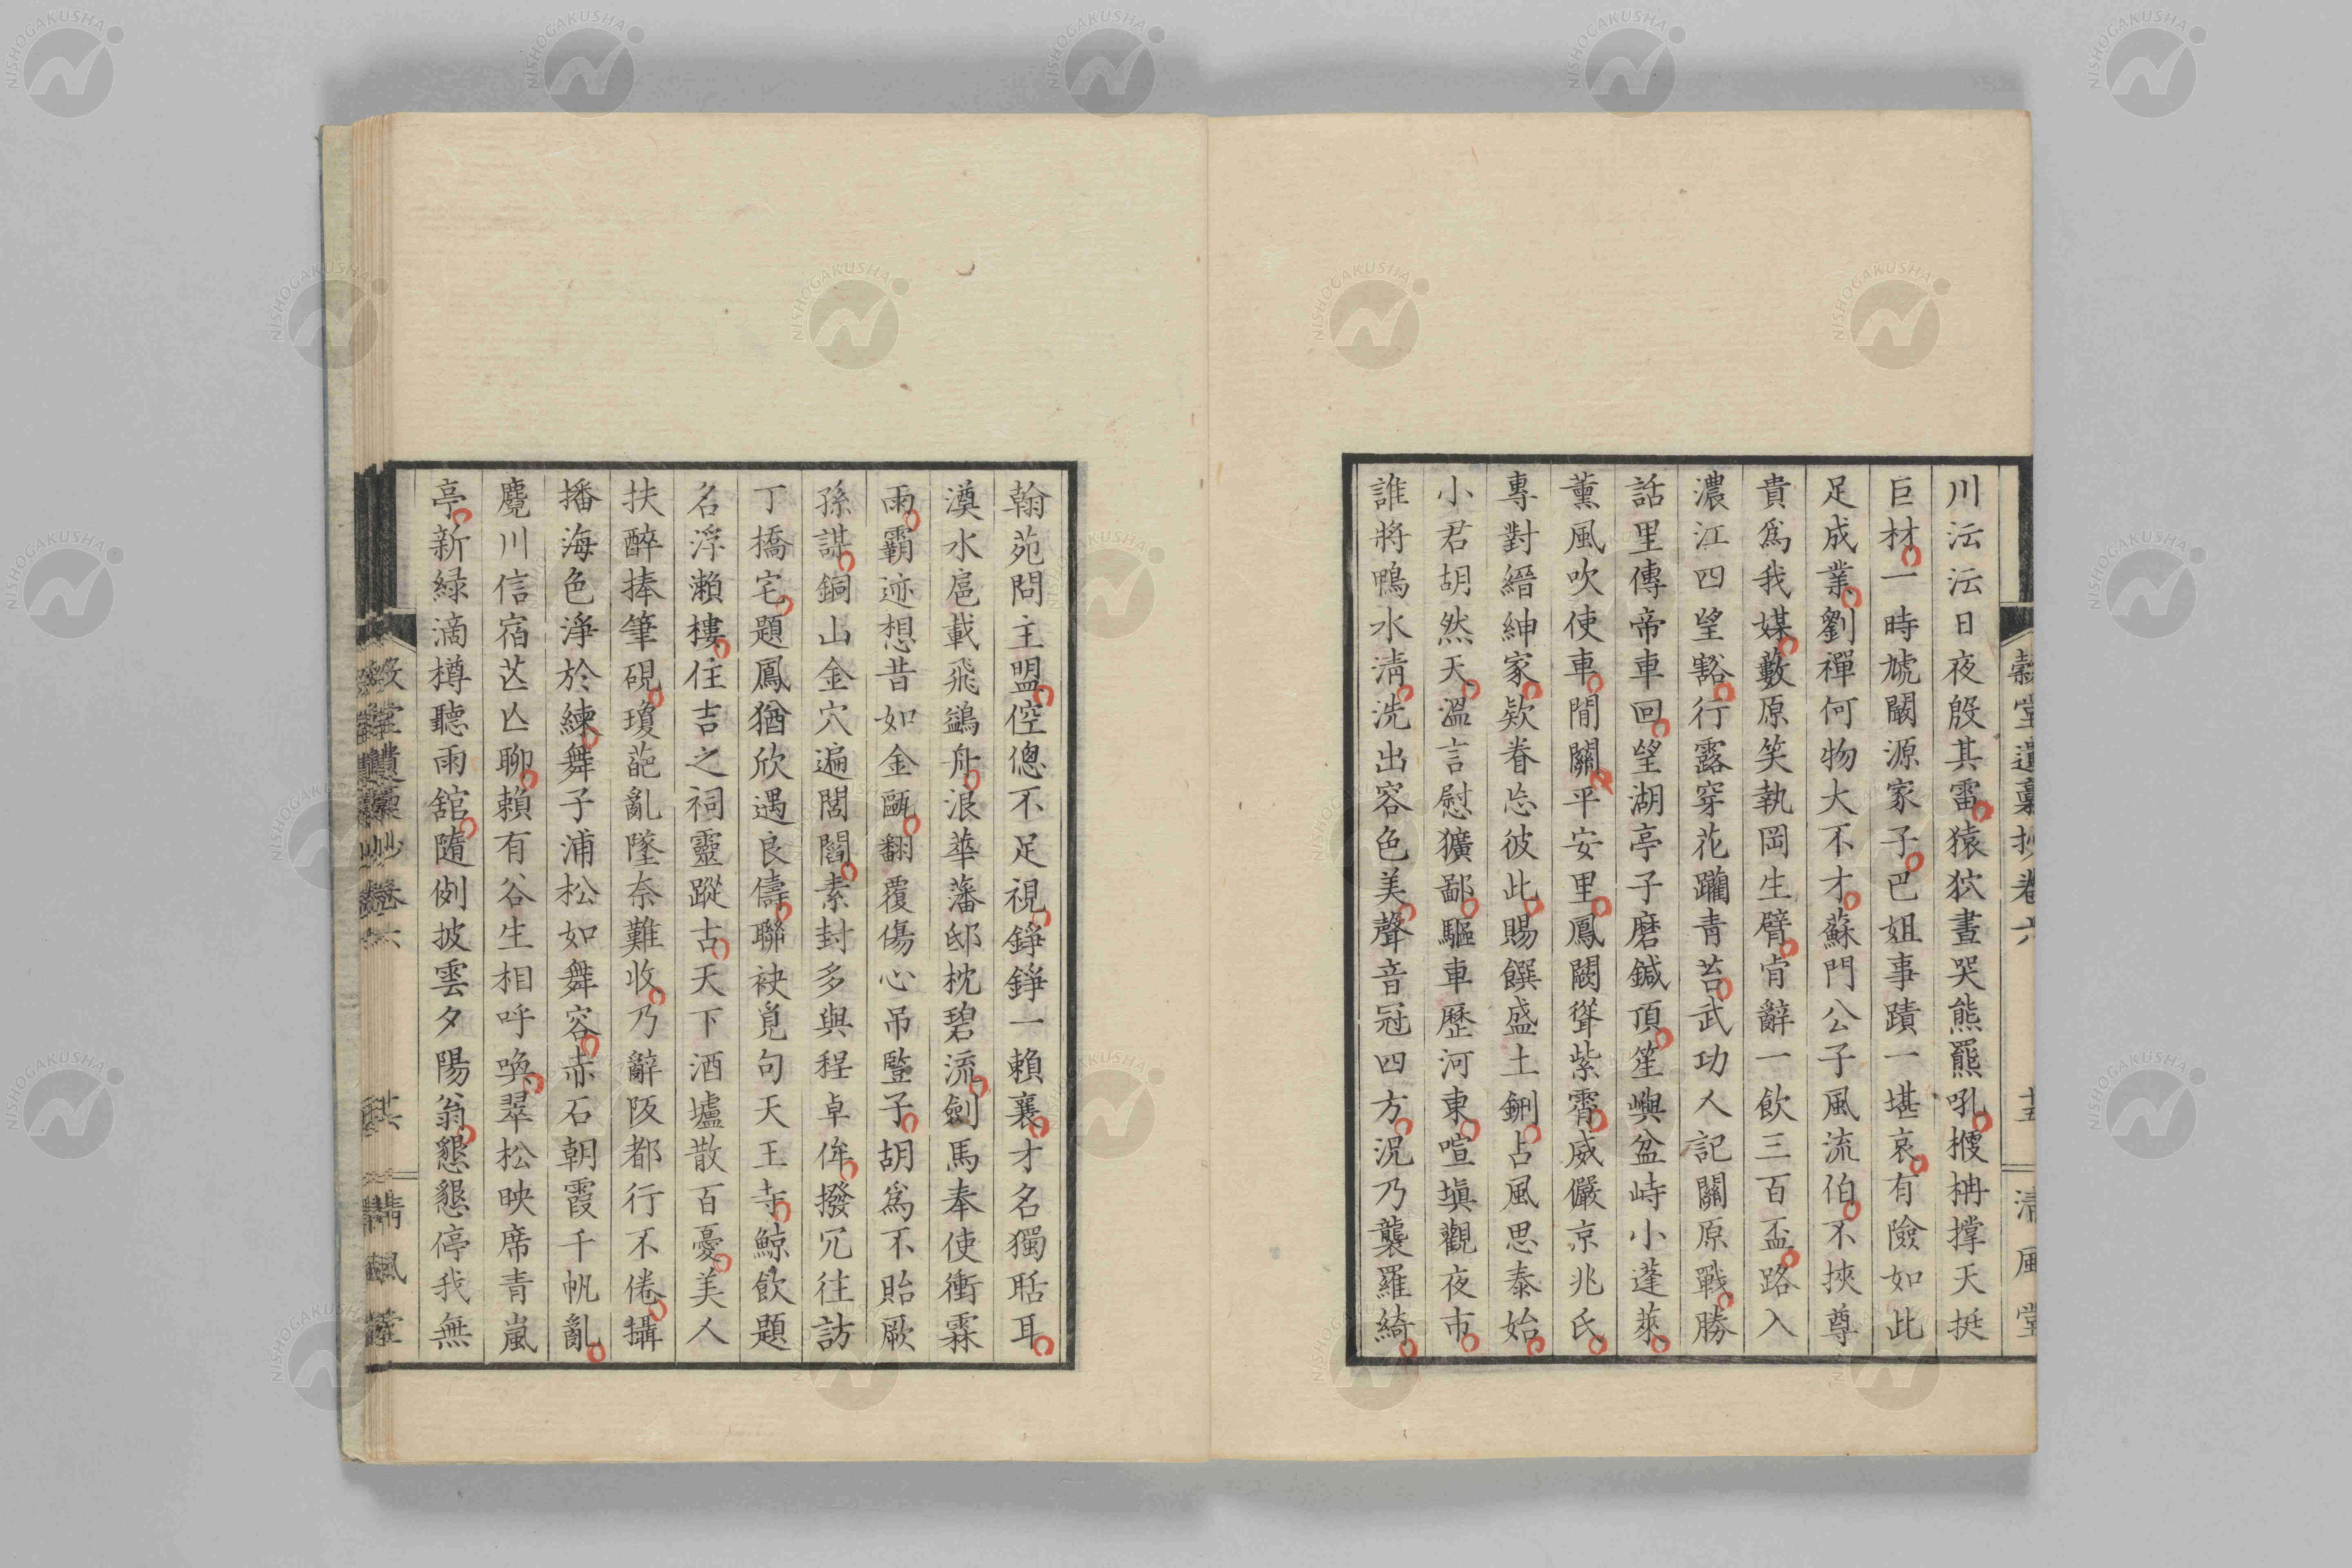 穀堂遺稾抄卷六 十五 清風堂
川沄沄日夜殷其雷猿狖晝哭熊羆吼擾柟撑天挺
巨材一時虓闞源家子巴姐事蹟一堪哀有險如此
足成業劉禪何物大不才蘇門公子風流伯不挾尊
貴爲我媒藪原笑執岡生臂肯辭一飲三百盃路入
濃江四望豁行露穿花躪青苔武功人記關原戰勝
話里傳帝車回望湖亭子磨鍼頂笙嶼盆峙小蓬萊
薰風吹使車閒關平安里鳳闕聳紫霄威儼京兆氏
專對縉紳家欵眷忘彼此賜饌盛土鉶占風思泰始
小君胡然天溫言慰獷鄙驅車歷河東喧塡觀夜市
誰將鴨水清洗出容色美聲音冠四方況乃襲羅綺
翰苑問主盟倥傯不足視錚錚一賴襄才名獨聒耳
澳水扈載飛鷁舟浪華藩邸枕碧流劍馬奉使衝霖
雨霸迹想昔如金甌翻覆傷心吊豎子胡爲不貽厥
孫謀銅山金穴遍閭閻素封多與程卓侔撥冗往訪
丁橋宅題鳳猶欣遇良儔聯袂覓句天王寺鯨飲題
名浮瀨樓住吉之祠靈蹤古天下酒壚散百憂美人
扶醉捧筆硯瓊葩亂墜奈難收乃辭阪都行不倦攝
播海色淨於練舞子浦松如舞容赤石朝霞千帆亂
麑川信宿亾聊賴有谷生相呼喚翠松映席青嵐
亭新緑滴樽聽雨舘隨例披雲夕陽翁懇懇停我無
清風堂